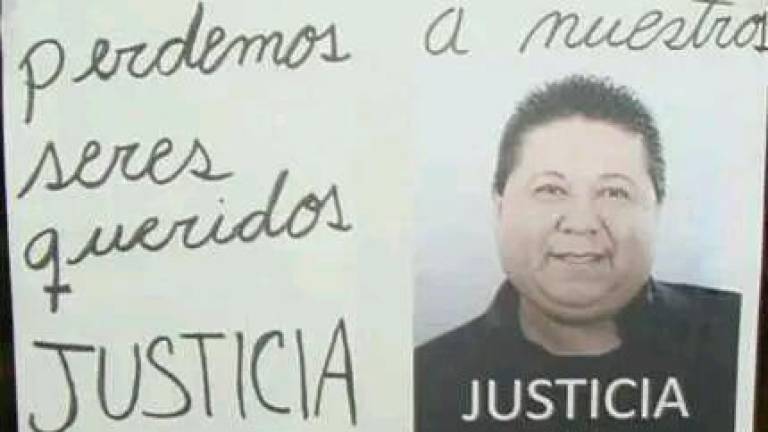 perdemos a nuestros
seres
queridos
JUSTICIA
JUSTICIA